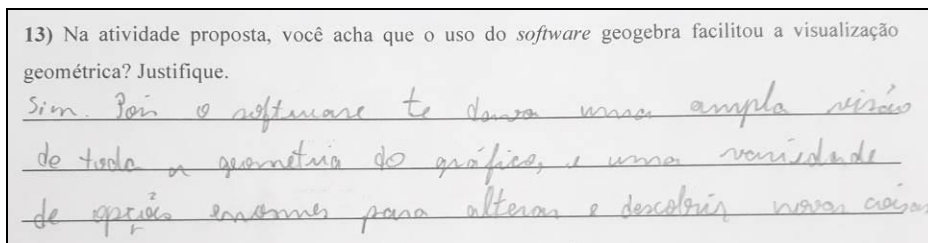 13) Na atividade proposta, você acha que o uso do software geogebra facilitou a visualização
geométrica? Justifique.
Sim. Pois o software te dava uma ampla visão
de toda a geometria do gráfico, e uma variedade
de opções enormes para alterar e descobrir novas coisas